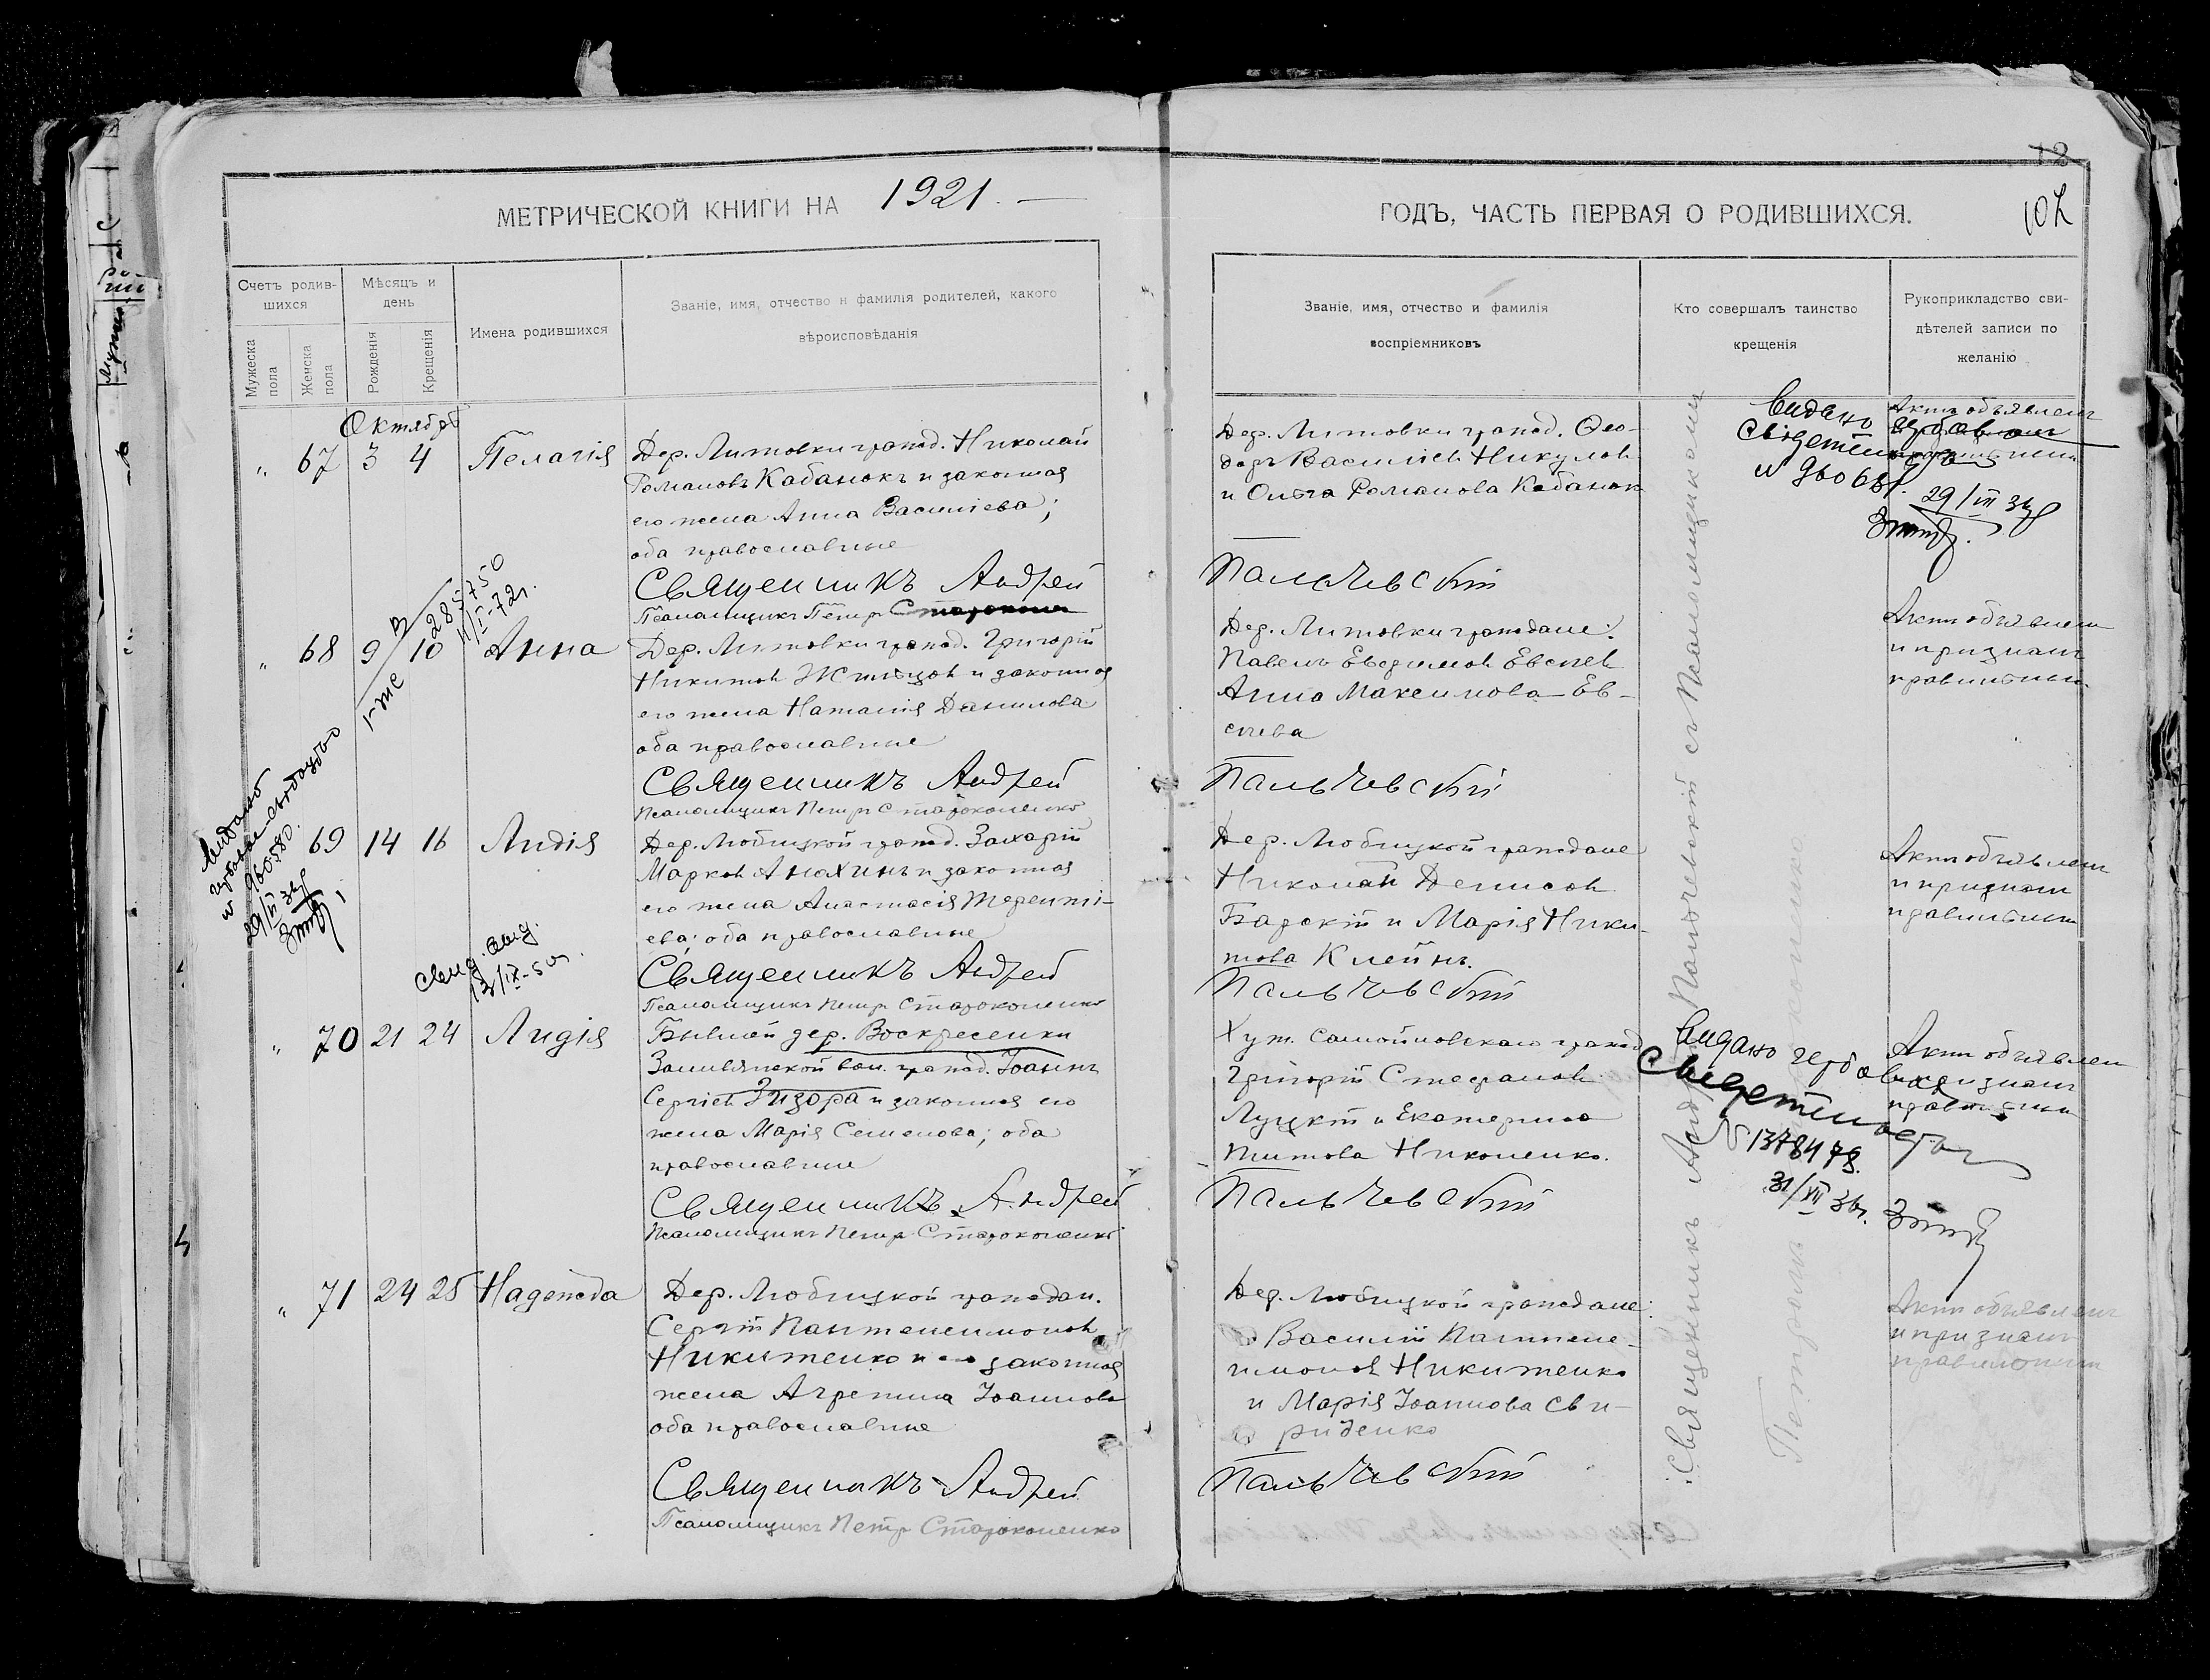 12
107
МЕТРИЧЕСКОЙ КНИГИ НА 1921.
ГОДЪ, ЧАСТЬ ПЕРВАЯ О РОДИВШИХСЯ.
Счетъ родив-
шихся
Мужеска
пола
Женска
пола
Мѣсяцъ и
день
Рожденія
Крещенія
Имена родившихся
Званіе, имя, отчество и фамилія родителей, какого
вѣроисповѣданія
Званіе, имя, отчество и фамилія
воспріемниковъ
Кто совершалъ таинство
крещенія
Рукоприкладство сви-
дѣтелей записи по
желанію
Октябрь
„ 67 3 4 Пелагія
Дер. Литовки гражд. Николай
Романовъ Кабанюкъ и законная
его жена Анна Василіева;
оба православные
Священникъ Андрей
Псаломщикъ Петръ
Дер. Литовки гражд. Ѳео-
доръ Василіевъ Никулов
и Ольга Романова Кабанюк
Пальчевскій
Видано
Свідетельство
N 960681.
29/VII 36
Актъ объявленъ
„ 68 9 10 Анна
285750
11/I-72г.
Дер. Литовки гражд. Григорій
Никитовъ и законная
его жена Наталія Данилова
оба православные
Священникъ Андрей
Псаломщикъ Петръ Староконенко
Дер. Литовки граждане:
Павелъ Евдокимовъ Евсѣев
Анна Максимова Ев-
сѣева
Пальчевскій
Актъ объявленъ
и признанъ
правильнымъ
Видано
N 960580.
„ 69 14 16 Лидія
Дер. Любицкой гражд. Захарій
Марковъ Анохинъ и законная
его жена Анастасія Теренті-
ева; оба православные
Священникъ Андрей
Псаломщикъ Петръ Староконенко
Дер. Любицкой граждане
Николай Денисовъ
Барскій и Марія Ники-
това Клейнъ.
Пальчевскій
Актъ объявленъ
и признанъ
правильнымъ
„ 70 21 24 Лидія
Бывшей дер. Воскресенки
гражд. Іоаннъ
Сергіевъ Зизора и законная его
жена Марія Семенова; оба
православные
Священникъ Андрей
Псаломщикъ Петръ Староконенко
Хут. Самойловскаго гражд.
Григорій Стефановъ
Луцкій и Екатерина
Титова Никоненко.
Пальчевскій
Видано гербовое
Свідетельство
N 1378478.
31/VII 36г.
Актъ объявленъ
и признанъ
правильнымъ
„ 71 24 25 Надежда
Дер. Любицкой граждан.
Сергій Пантелеимоновъ
Никитенко и законная
жена Агрепина Іоаннова
оба православные
Священникъ Андрей
Псаломщикъ Петръ Староконенко
Дер. Любицкой граждане:
Василій Пантеле-
имоновъ Никитенко
и Марія Іоаннова Сви-
риденко
Пальчевскій
Актъ объявленъ
и признанъ
правильнымъ
Священникъ Андрей Пальчевскій съ Псаломщикомъ
Петромъ Староконенко